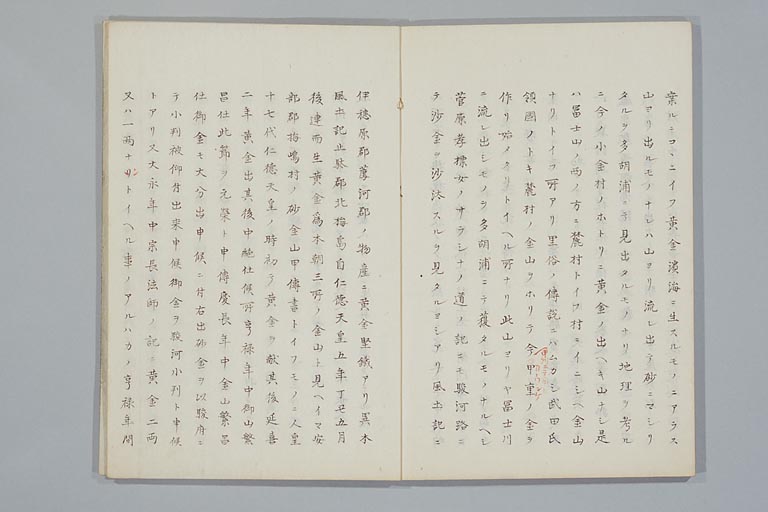 案ルニコヽニイフ黄金濱海ニ生スルモノニアラス
山ヨリ出ルモノナレハ山ヨリ流レ出テ砂ニマシリ
タルヲ多胡浦ニテ見出タルモノナリ地理ヲ考ル
ニ今ノ小金村ノホトリニ黄金ノ出ヘキ山ナシ是
ハ冨士山ノ西ノ方ニ麓村トイフ村ニイニシヘ金山
ナリトイフ所アリ里俗ノ傳説ニハムカシ武田氏
領國ノトキ麓村ノ金山ヲホリテ今甲重ノ金ヲ
作リ始メタリトイヘル所ナリ此山ヨリヤ冨士川
ニ流レ出シモノヲ多胡浦ニテ獲タルモノナルヘシ
菅原孝標女ノサラシナノ道ノ記ニモ駿河路ニ
テ沙金ヲ沙汰スルヲ見タルヨシアリ風土記ニ
伊穂原郡蘆河郡ノ物産ニ黄金堅鐵アリ異本
風土記止駄郡北梅嶌自仁徳天皇五年丁丑五月
後連而生黄金為本朝三所ノ金山ト見ヘイマ安
部郡梅嶋村ノ砂金山甲傳書トイフモノニ人皇
十七代仁徳天皇ノ時初テ黄金ヲ献其後延喜
二年黄金出其後中絶仕候所亨禄年中御山繁
昌仕此節ヲ元榮ト申傳慶長年中金山繁昌
仕御金モ大分出申候ニ付右出砂金ヲ以駿府ニ
テ小判被仰付出来申候御金ヲ駿河小判ト申候
トアリ又大永年中宗長法師ノ記ニ黄金二両
又ハ一両ナリトイヘル事ノアルハカノ亨禄年間